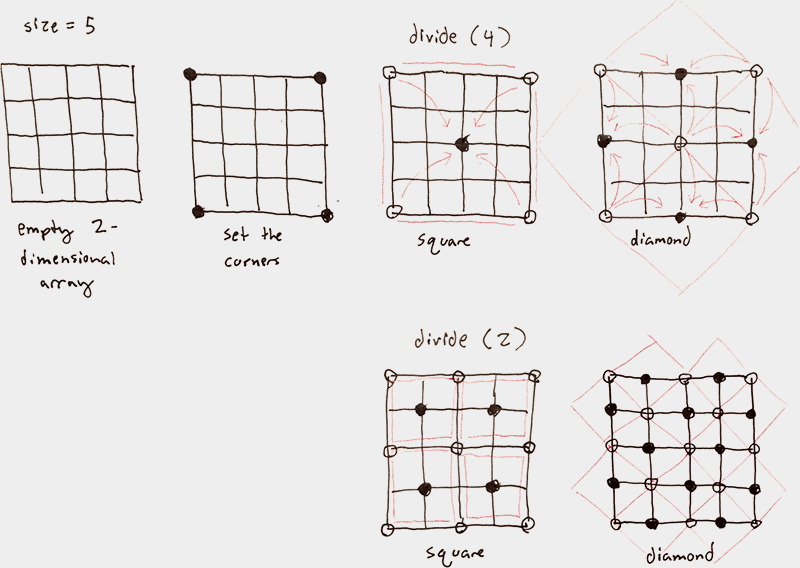 size = 5
empty 2-
dimensional
array
set the
corners
divide (4)
square
diamond
divide (2)
square
diamond